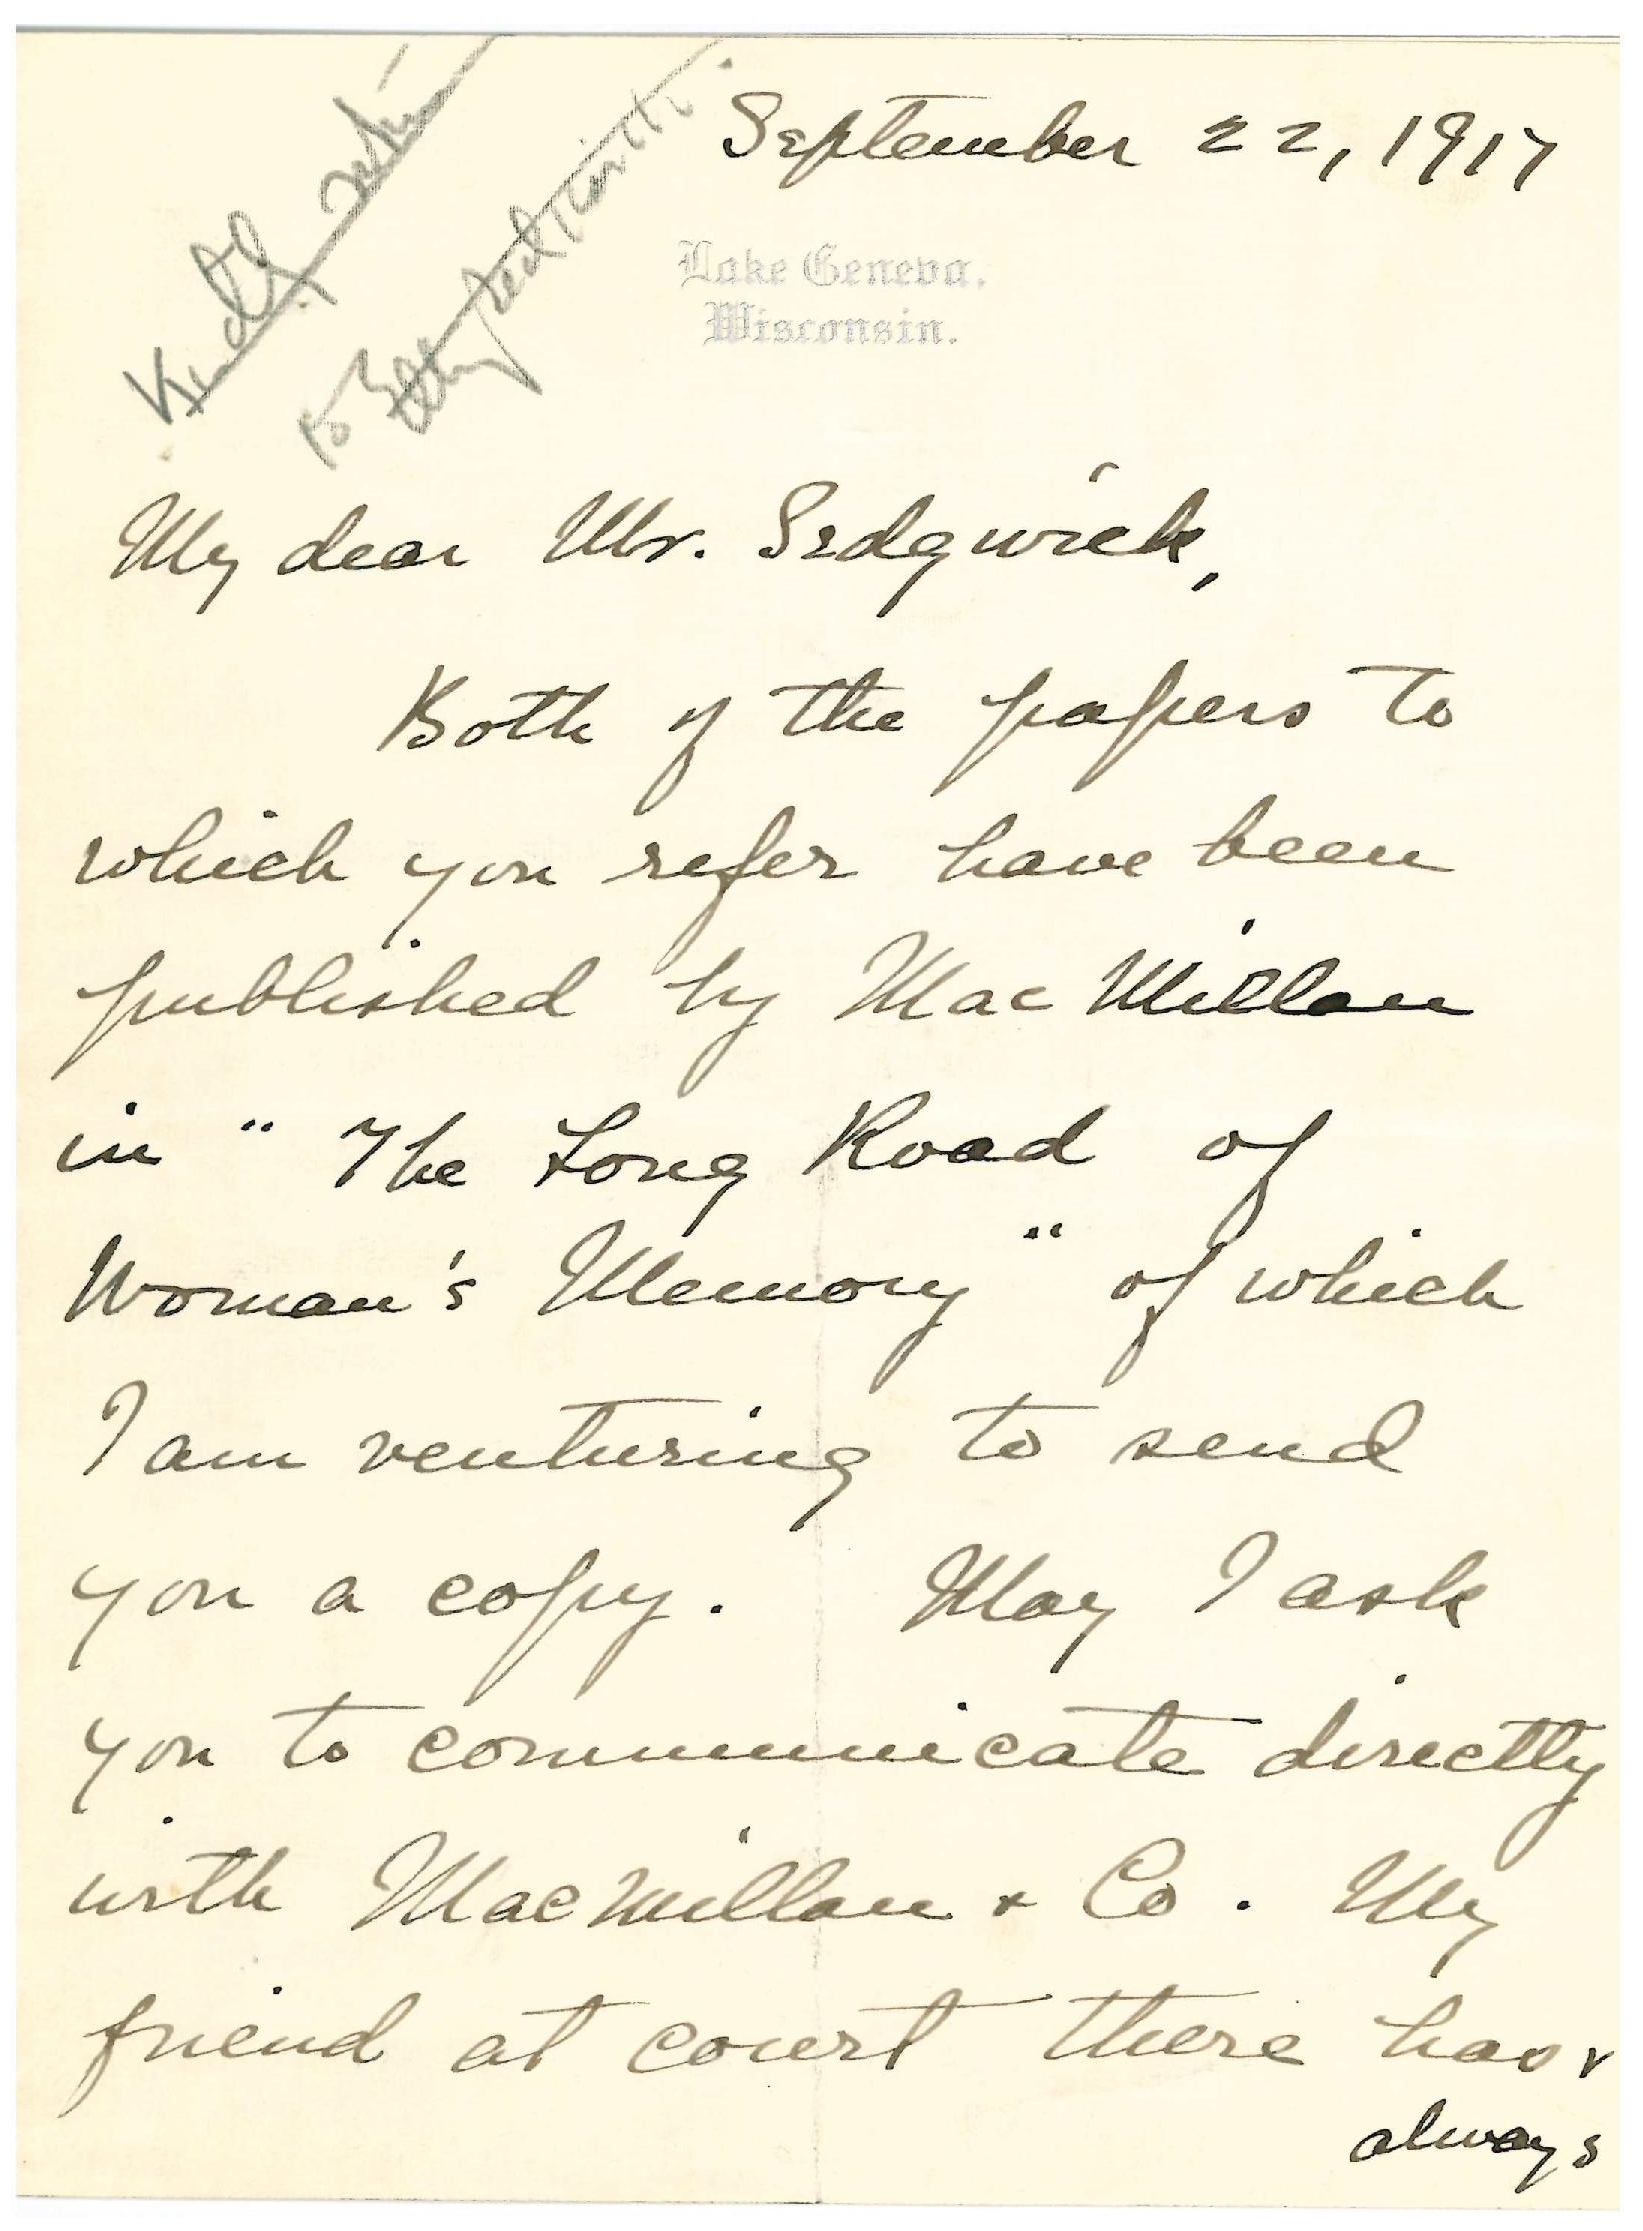 Kindly return
to Ellery Sedgwick.
September 22, 1917
Lake Geneva.
Wisconsin.
My dear Mr. Sedgwick,
Both of the papers to
which you refer have been
published by Mac Millan
in " The Long Road of
Woman's Memory" of which
I am venturing to send
you a copy. May I ask
you to communicate directly
with MacMillan & Co. My
friend at court there has
always